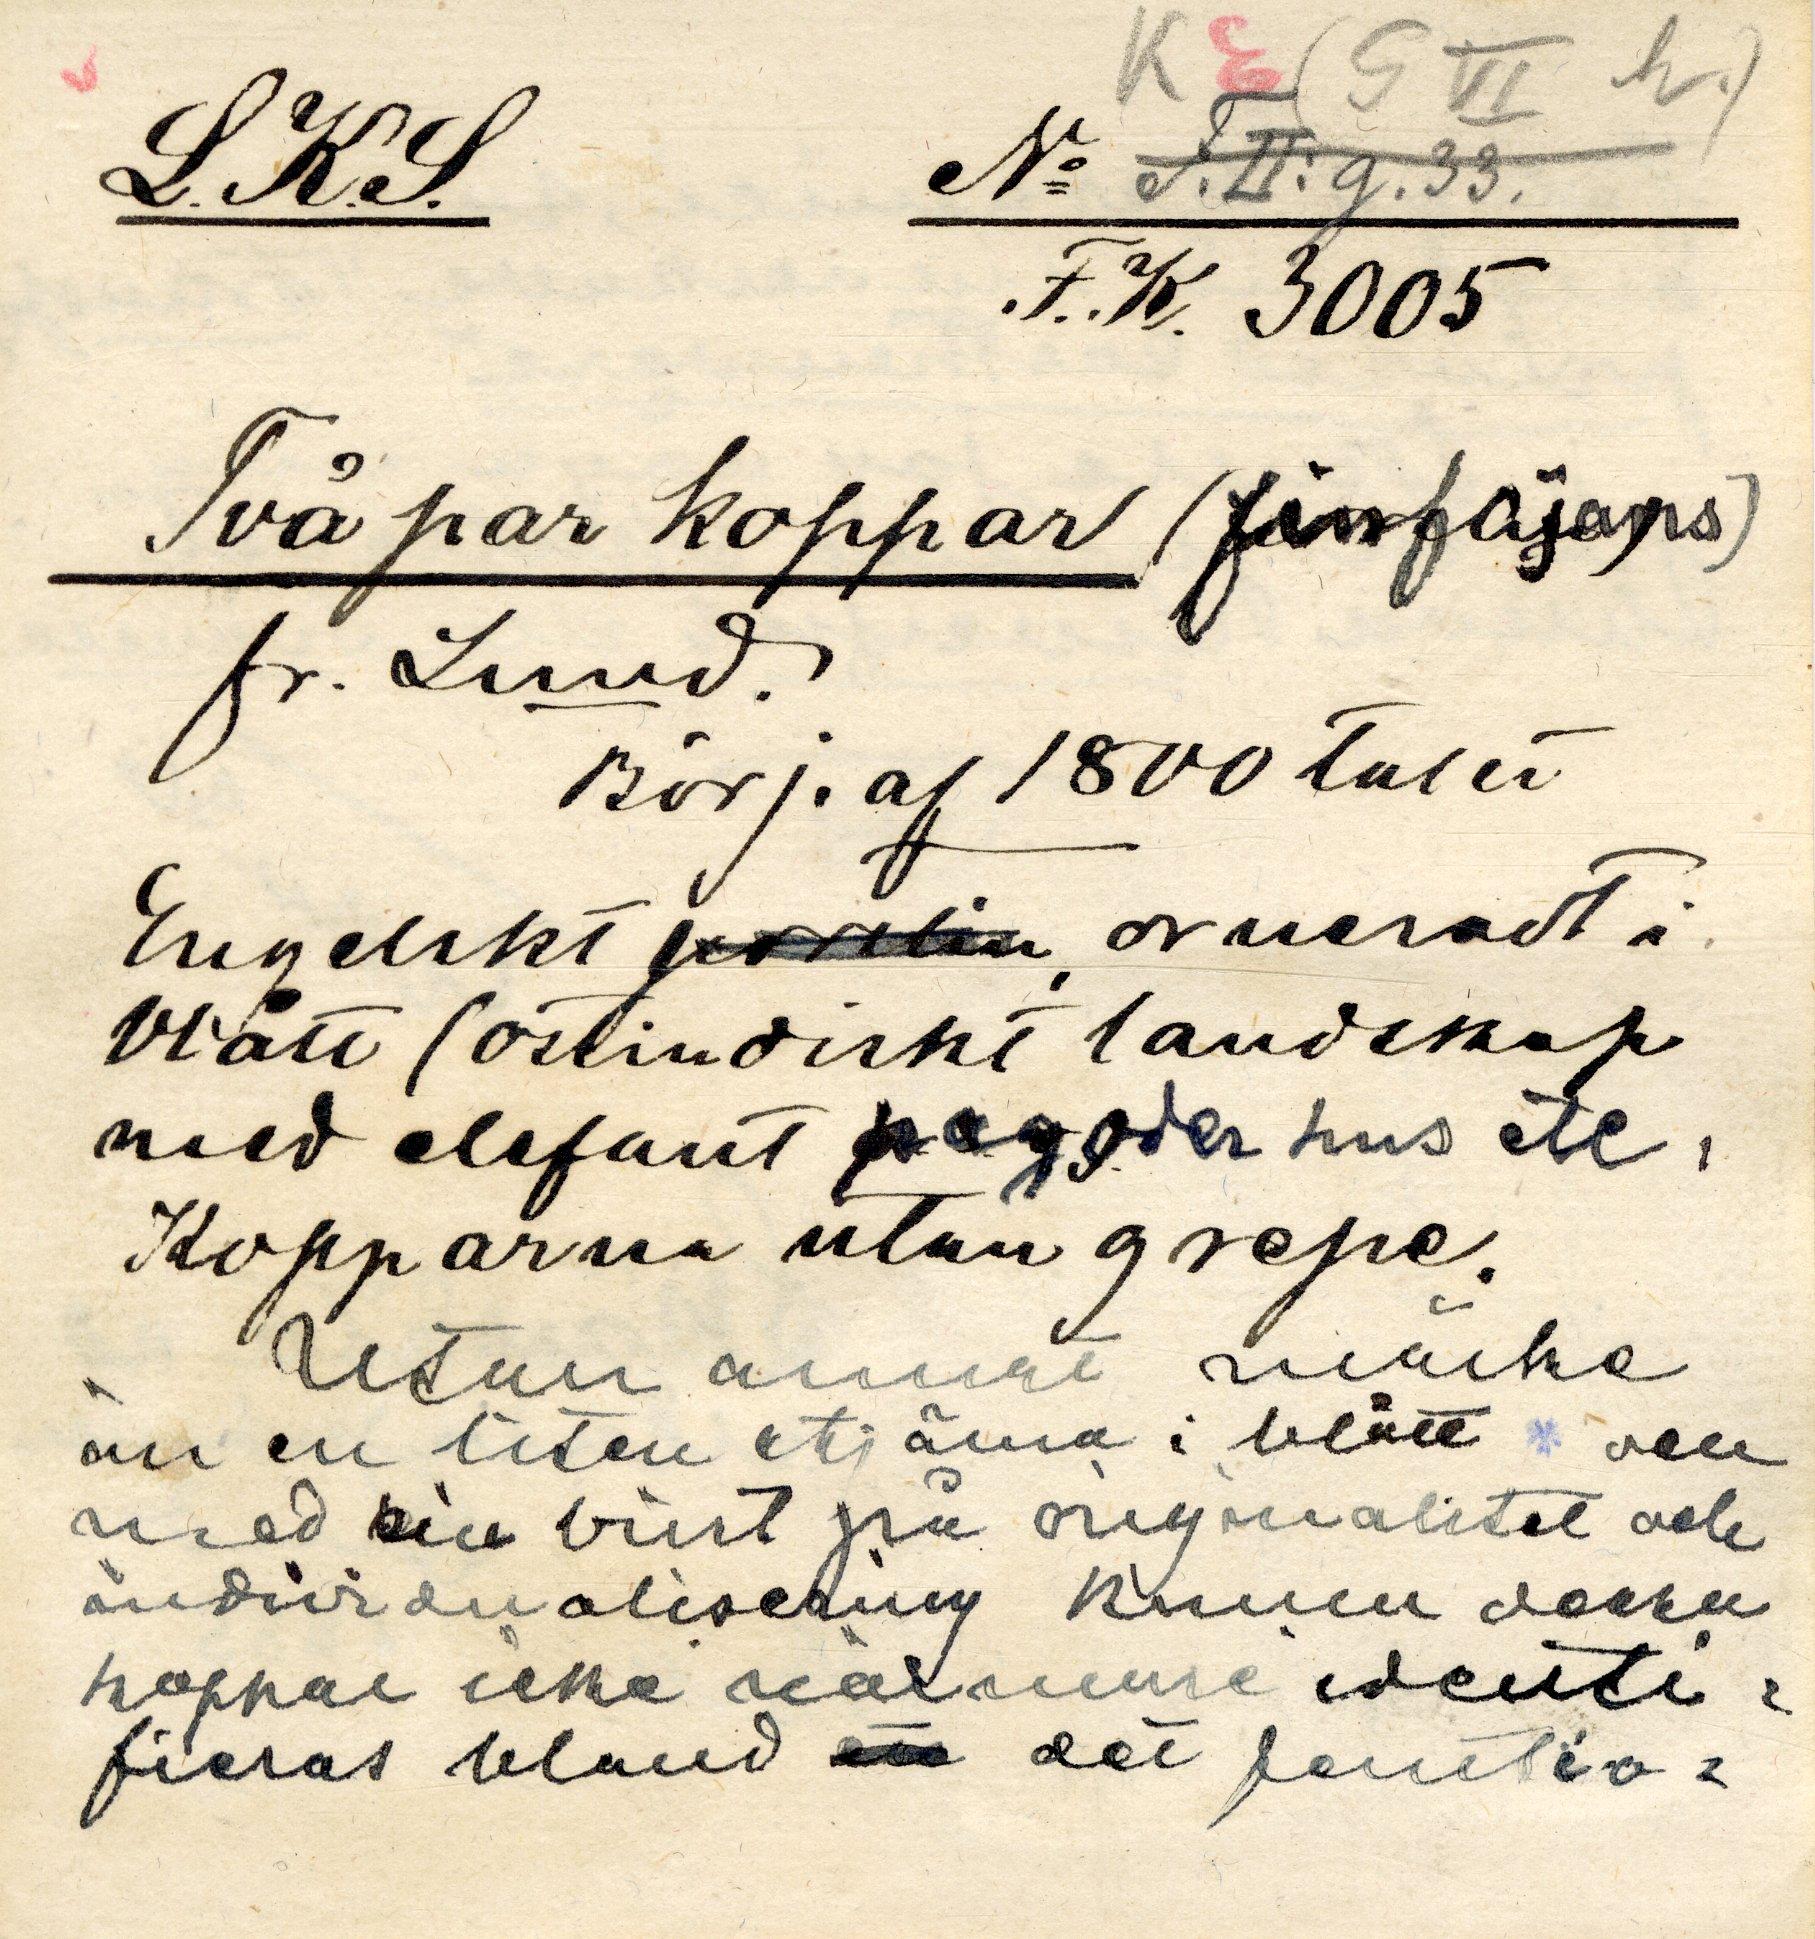 K E (G VI h.)
L.K.S. No F.II:g.33.
F.K. 3005
Två par koppar (finfajans)
fr. Lund.
Börj. af 1800 talet
Engelskt porslin, orneradt i
blått (ostindiskt landskap
med elefant pagoder hus etc.
Kopparna utan grepe.
Utan annat märke
än en liten stjärna i blått * och
med sin brist på originalitet och
individualisering kunna dessa
koppar icke närmare identi=
fieras bland det